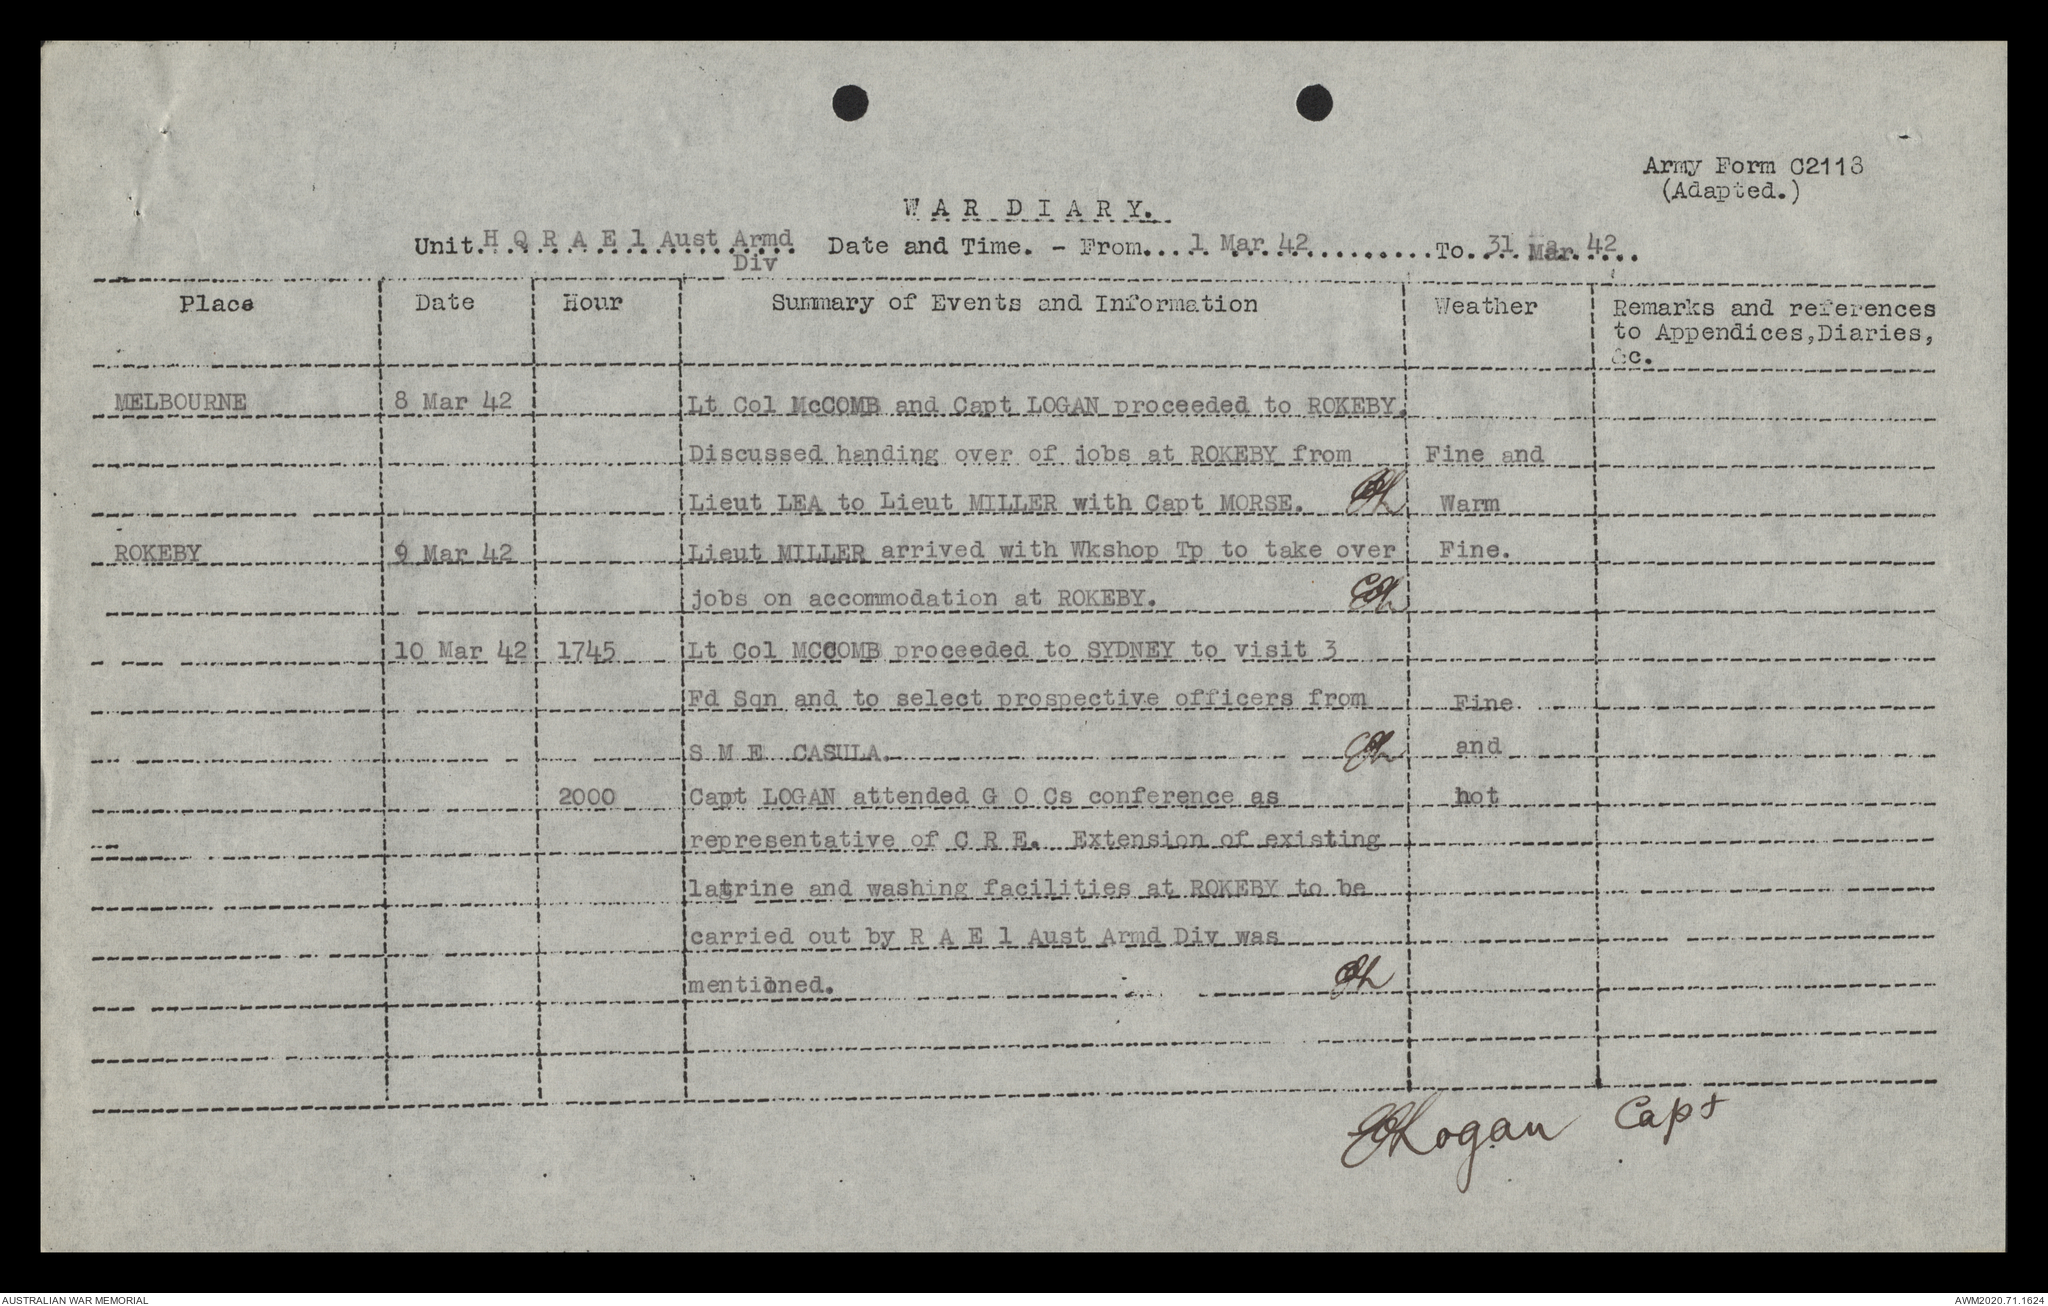 Army Form C2118
(Adapted.)
WAR DIARY.
Unit. H Q R A E 1 Aust Armd Div Date and Time. - From....1 Mar 42..............To. 31 Mar 42..
Place Date Hour Summary of Events and Information Weather Remarks and references
to Appendices,Diaries,
&c.
MELBOURNE 8 Mar 42 Lt Col McCOMB and Capt LOGAN proceeded to ROKEBY.
Discussed handing over of jobs at ROKEBY from Fine and
Lieut LEA to Lieut MILLER with Capt MORSE. Warm
ROKEBY 9 Mar 42 Lieut MILLER arrived with Wkshop Tp to take over Fine.
jobs on accommodation at ROKEBY.
10 Mar 42 1745 Lt Col MCCOMB proceeded to SYDNEY to visit 3
Fd Sqn and to select prospective officers from Fine
S M E CASULA. and
2000 Capt LOGAN attended G O Cs conference as hot
representative of C R E. Extension of existing
latrine and washing facilities at ROKEBY to be
carried out by R A E 1 Aust Armd Div was
mentioned.
Logan Capt
AUSTRALIAN WAR MEMORIAL AWM2020.71.1624